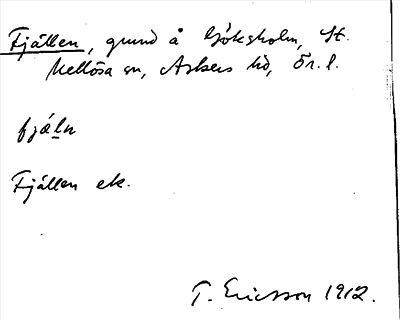 Fjällen, grund å Göksholm, St.
Mellösa sn, Askers hd, Ör. l.
fjäln
Fjällen ek.
T. Ericsson 1912.